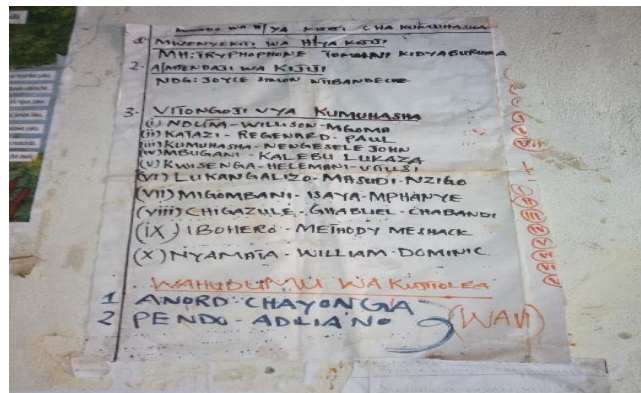 MUUNDO WA H/YA KIJIJI CHA KUMUHASHA
1. MWENYEKITI WA H/YA KIJIJI
MH: TRYPHOPHONE TOMHANI KIDYABURUMA
2. A/MTENDAJI WA KIJIJI
NDG: JOYCE SIMON
3. VITONGOJI VYA KUMUHASHA
(i) NDUTA - WILLISON - MGOMA
(ii) KATAZI - REGENARD - PAUL
(iii) KUMUHASHA - NENGESELE JOHN
(iv) MBUGANI - KALEBU LUKAZA
(v) KWISENGA - HELEMANI -
(vi) LUKANGALIZO - MASUDI - NZIGO
(vii) MIGOMBANI - ISAYA - MPHANYE
(viii) CHIGAZULE - GHABLIEL - CHABANDI
(ix) IBOHERO - METHODY MESHACK
(x) NYAMATA - WILLIAM - DOMINIC
WAHUDUMU WA KUJITOLEA
1 ANORD CHAYONGA
2 PENDO - ADLIANO (WAVI)